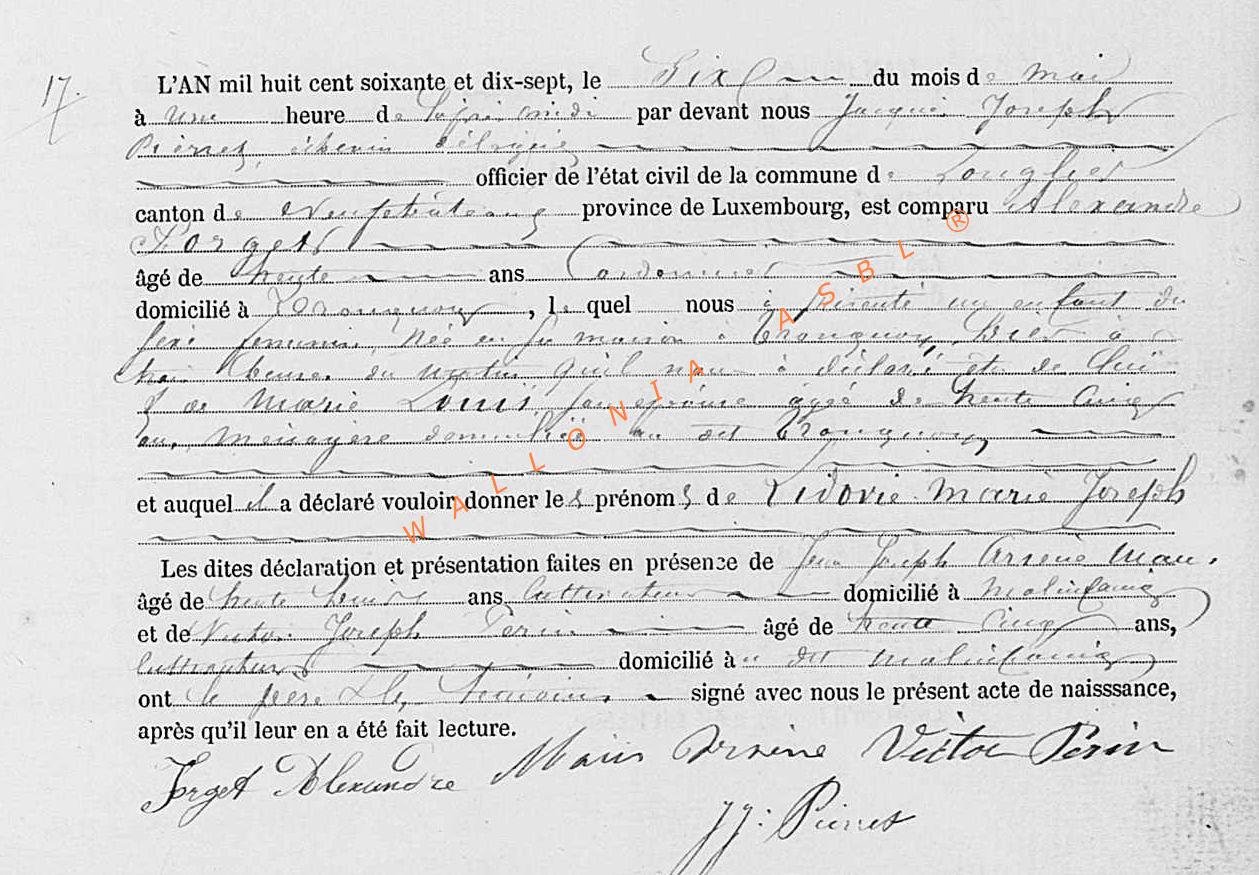 17.
L'AN mil huit cent soixante et dix-sept, le Six du mois de mai
à une heure de l'après midi par devant nous Jacques Joseph
Pierret, échevin délégué
officier de l'état civil de la commune de Longlier
canton de Neufchâteau province de Luxembourg, est comparu Alexandre
Forget
âgé de trente ans Cordonnier
domicilié à Tronquoy, le quel nous à présenté un enfant du
sexe féminin, Née en sa maison à Tronquoy, hier à
trois heures du matin qu'il nous à déclaré être de lui
& de Marie Louis son épouse âgée de trente cinq
ans, ménagère domiciliée au dit Tronquoy
et auquel il a déclaré vouloir donner les prénoms de Lidovie Marie Joseph
Les dites déclaration et présentation faites en présence de Jean Joseph Arsène Maus.
âgé de trente ans, Cultivateur domicilié à Molinfaing
et de Victor Joseph Perin âgé de trente cinq ans,
Cultivateur domicilié à au dit Molinfaing
ont le père & les témoins signé avec nous le présent acte de naisssance,
après qu'il leur en a été fait lecture.
Forget Alexandre Arsène Victor Perin
JJ: Pierret
WALLONIA ASBL ®